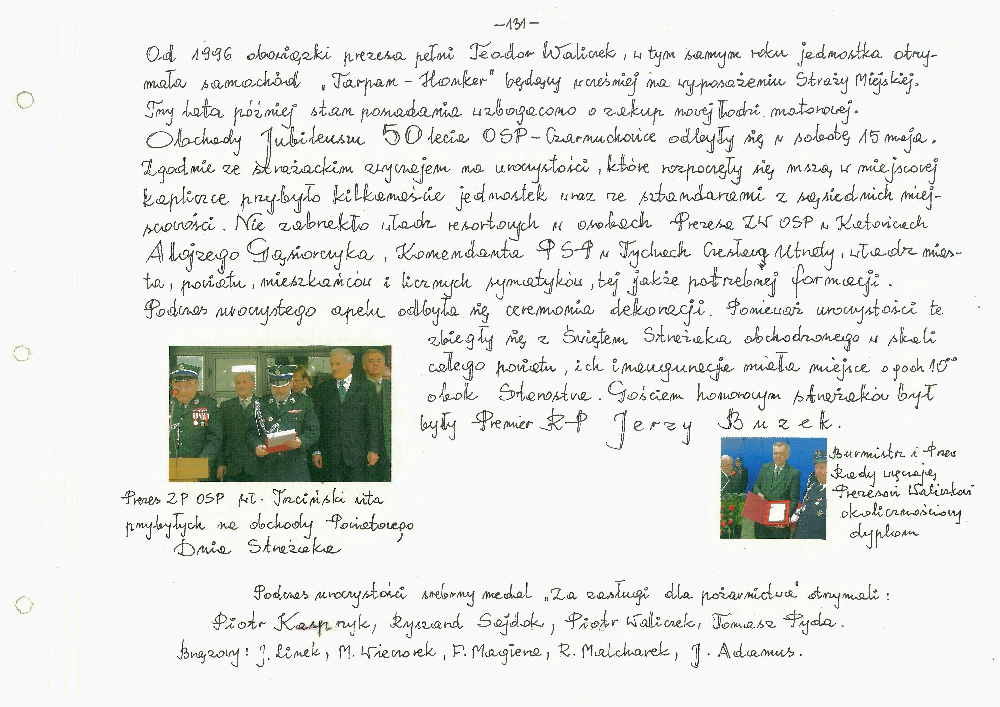 -131-
Od 1996 obowiązki prezesa pełni Teodor Walicek, w tym samym roku jednostka otrzy-
mała samochód „Tarpan - Honker" będący wcześniej na wyposażeniu Straży Miejskiej.
Trzy lata później stan posiadania wzbogacono o zakup nowej łodzi motorowej.
Obchody Jubileuszu 50 lecia OSP - Czarnuchowice odbyły się w sobotę 15 maja.
Zgodnie ze strażackim zwyczajem na uroczystości, które rozpoczęły się mszą w miejscowej
kapliczce przybyło kilkanaście jednostek wraz ze sztandarami z sąsiednich miej-
scowości. Nie zabrakło władz resortowych w osobach Prezesa ZW OSP w Katowicach
Alojzego Gąsiorczyka, Komendanta PSP w Tychach Czesława Utraty, władz mias-
ta, powiatu, mieszkańców i licznych symatyków, tej jakże potrzebnej formacji.
Podczas uroczystego apelu odbyła się ceremonia dekoracji. Ponieważ uroczystości te
zbiegły się z Świętem Strażaka obchodzonego w skali
całego powiatu, ich inauguracja miała miejsce o godz 10⁰⁰
obok Starostwa. Gościem honorowym strażaków był
były Premier RP Jerzy Buzek.
Prezes ZP OSP Wł. Trzciński wita
przybyłych na obchody Powiatowego
Dnia Strażaka
Burmistrz i Prze
Rady wręczają
Prezesowi
okolicznościowy
dyplom
Podczas uroczystości srebrny medal „Za zasługi dla pożarnictwa" otrzymali:
Piotr Kasprzyk, Ryszard Sajdok, Piotr Walicek, Tomasz Pyda.
Brązowy: J. Linek, M. Wieczorek, F. Magiera, R. Malcharek, J. Adamus.